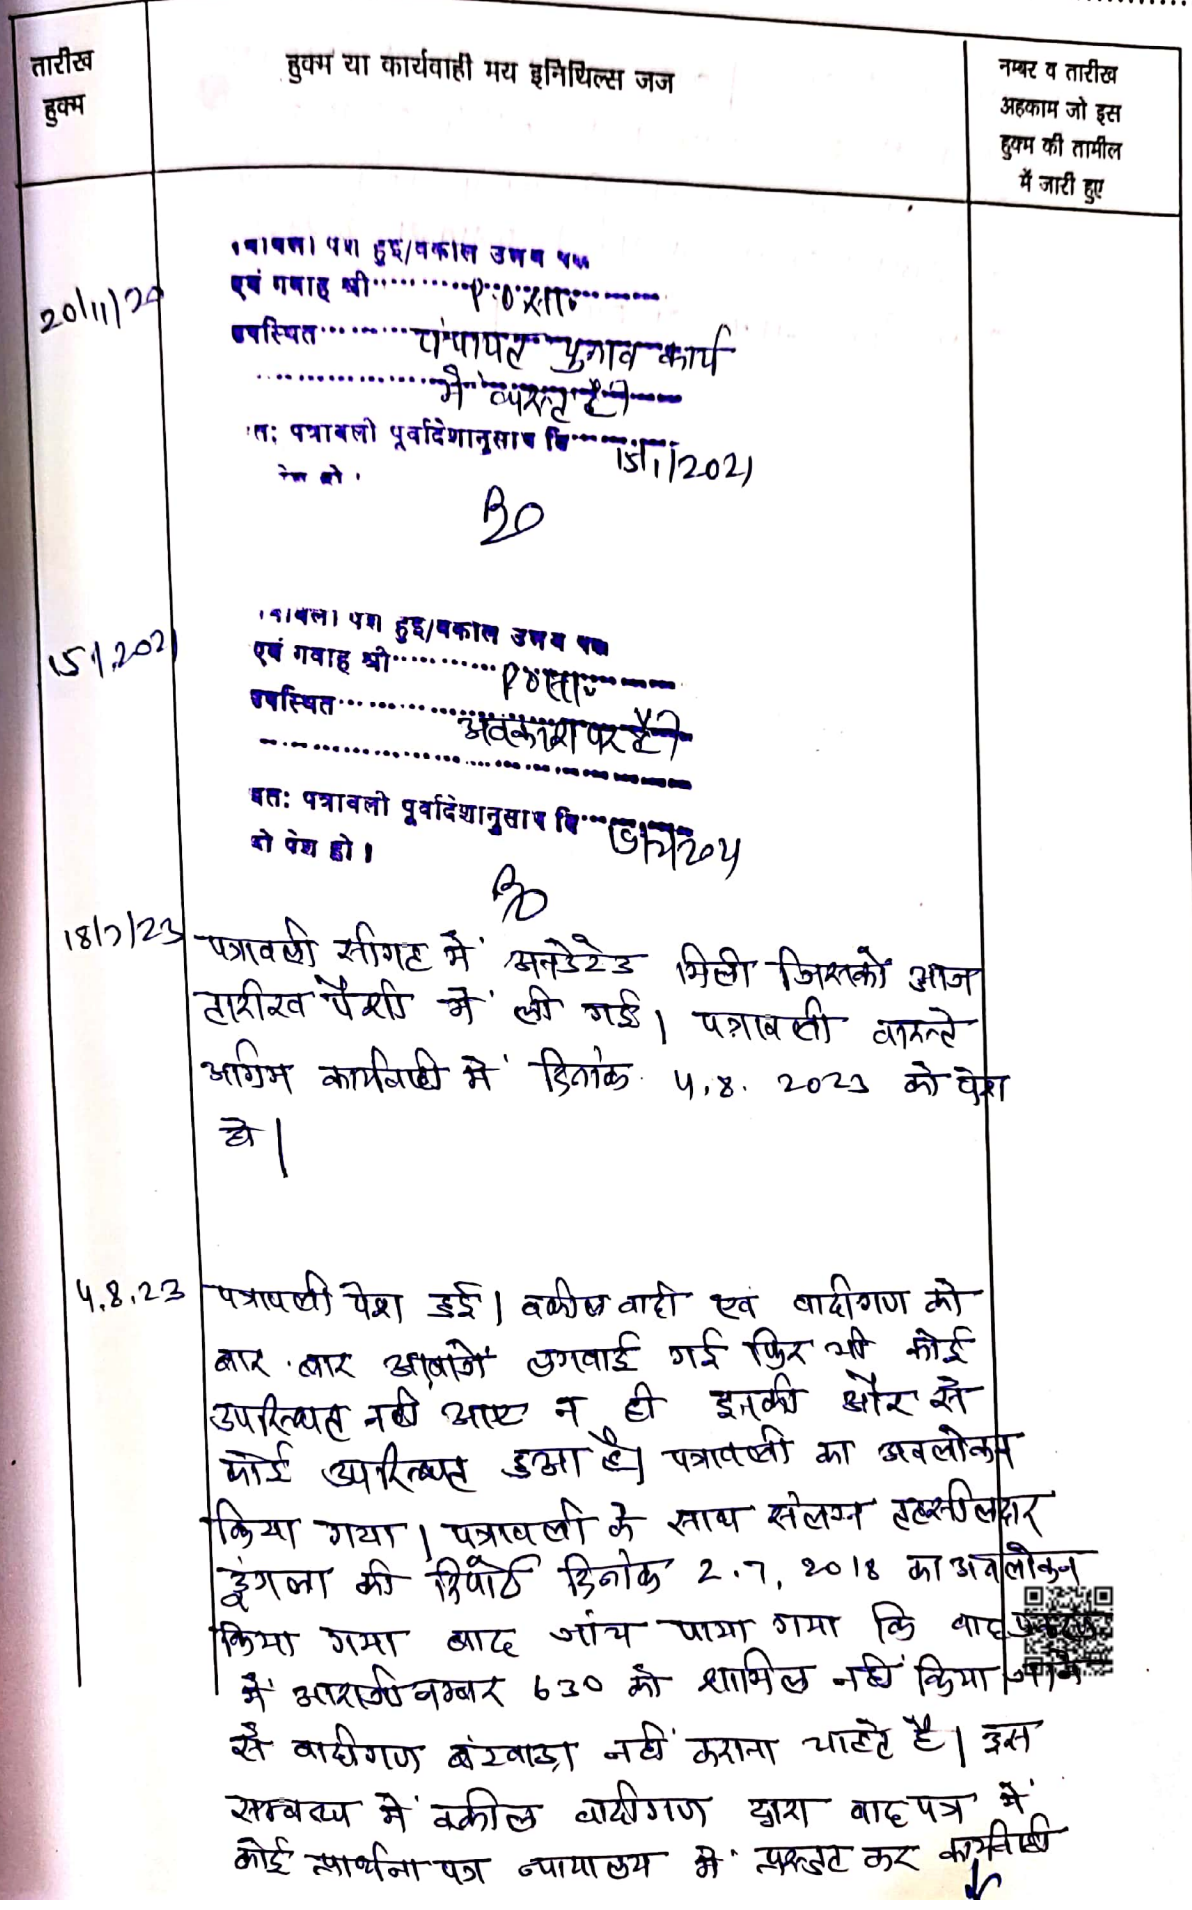 तारीख
हुक्म
हुक्म या कार्यवाही मय इनिथिल्स जज
नम्बर व तारीख
अहकाम जो इस
हुक्म की तामील
में जारी हुए
20/11/20
पत्रावली पेश हुई/वकील उभय पक्ष
एवं गवाह श्री P.O.सा.
उपस्थित पंचायत चुनाव कार्य
में व्यस्त है।
अत: पत्रावली पूर्वादेशानुसार दि 15/1/2021
को पेश हो।
15/1/2021
पत्रावली पेश हुई/वकील उभय पक्ष
एवं गवाह श्री P.O.सा.
उपस्थित
अवकाश पर है।
अत: पत्रावली पूर्वादेशानुसार दि
को पेश हो।
18/7/23 पत्रावली सीगट में अनडेटेड मिली जिसको आज
तारीख पेशी में ली गई। पत्रावली वास्ते
अग्रिम कार्यवाही में दिनांक 4.8.2023 को पेश
हो।
4.8.23 पत्रावली पेश हुई। वकील वादी एवं वादीगण को
बार-बार आवाजें लगवाई गई फिर भी कोई
उपस्थित नही आए न ही इनकी और से
कोई उपस्थित हुआ है। पत्रावली का अवलोकन
किया गया। पत्रावली के साथ संलग्न तहसीलदार
डूंगला की रिपोर्ट दिनांक 2.7.2018 का अवलोकन
किया गया बाद जांच पाया गया कि वाद
में आराजी नम्बर 630 को शामिल नहीं किया जाने
से वादीगण बंटवाड़ा नहीं कराना चाहते है। इस
सम्बन्ध में वकील वादीगण द्वारा वादपत्र में
कोई प्रार्थना पत्र न्यायालय में प्रस्तुत कर कार्यवाही